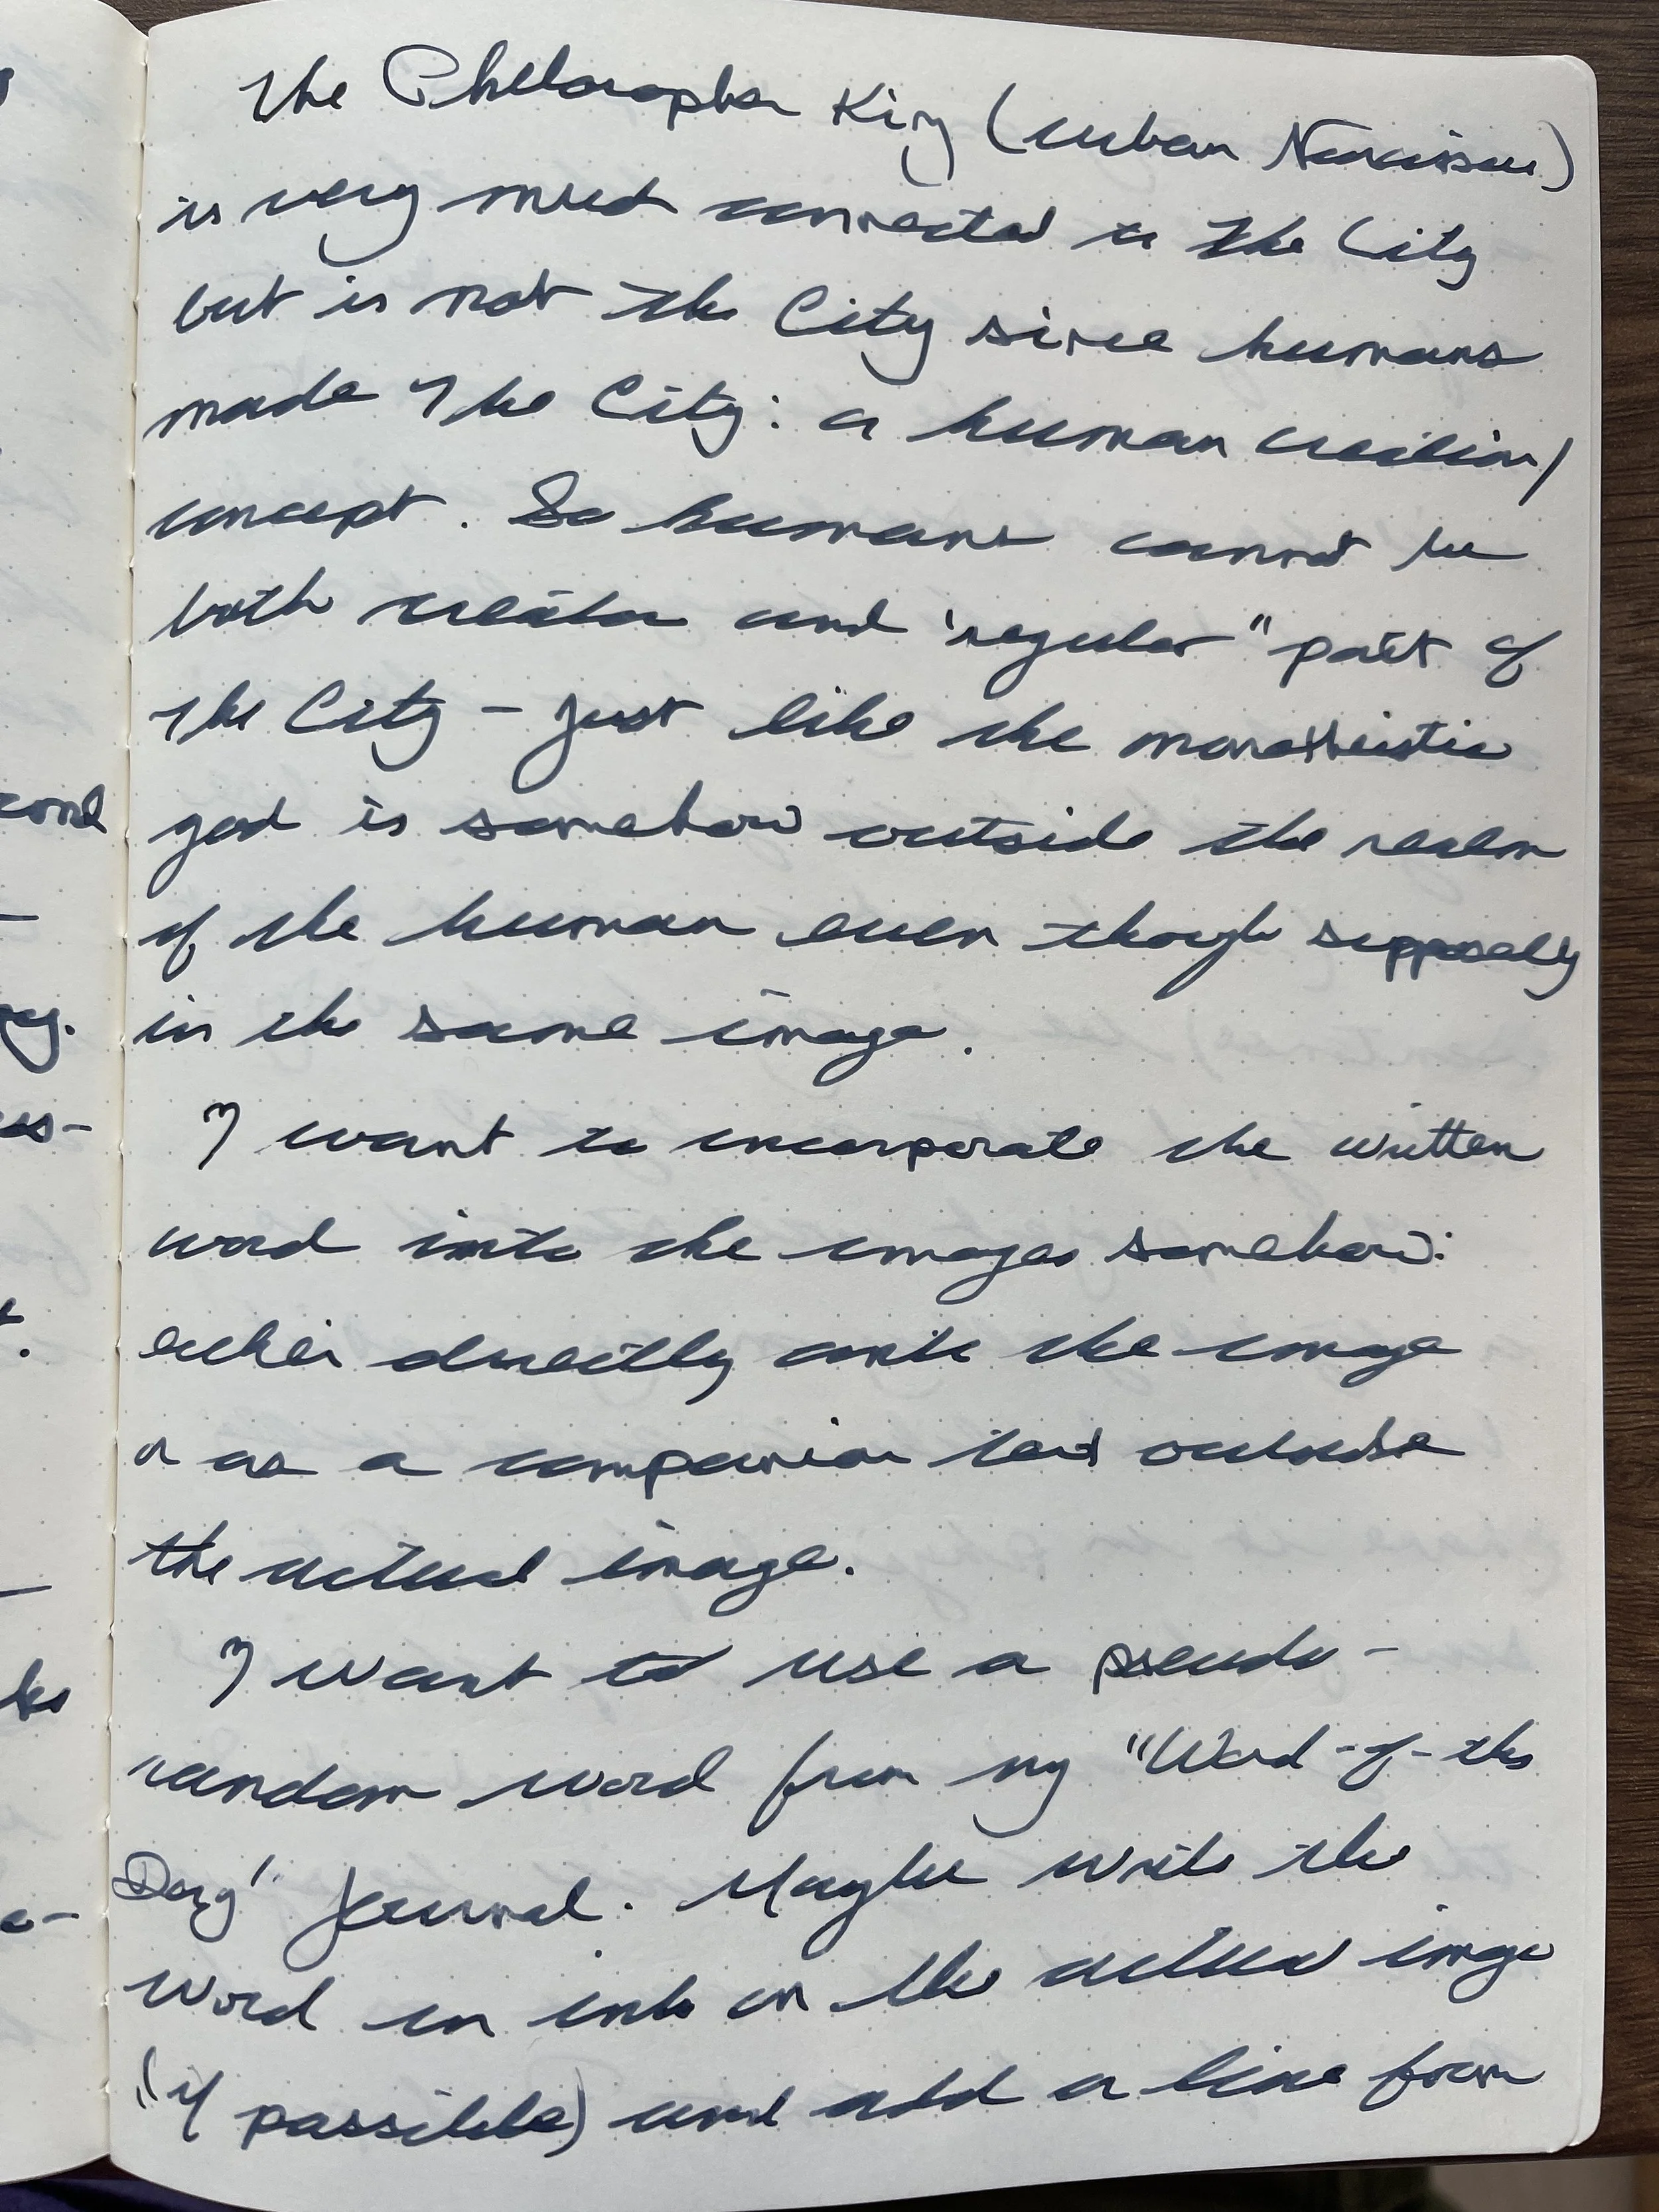 The Philosopher King (urban Narcissus)
is very much connected to the City
but is not the City since humans
made the City: a human creation/
concept. So humans cannot be
both creator and "regular" part of
the City – just like the monotheistic
god is somehow outside the realm
of the human even though supposedly
in the same image.
I want to incorporate the written
word into the images somehow:
either directly onto the image
or as a companion text outside
the actual image.
I want to use a pseudo-
random word from my "Word-of-the
Day" journal. Maybe write the
word in ink on the actual image
(if possible) and add a line from